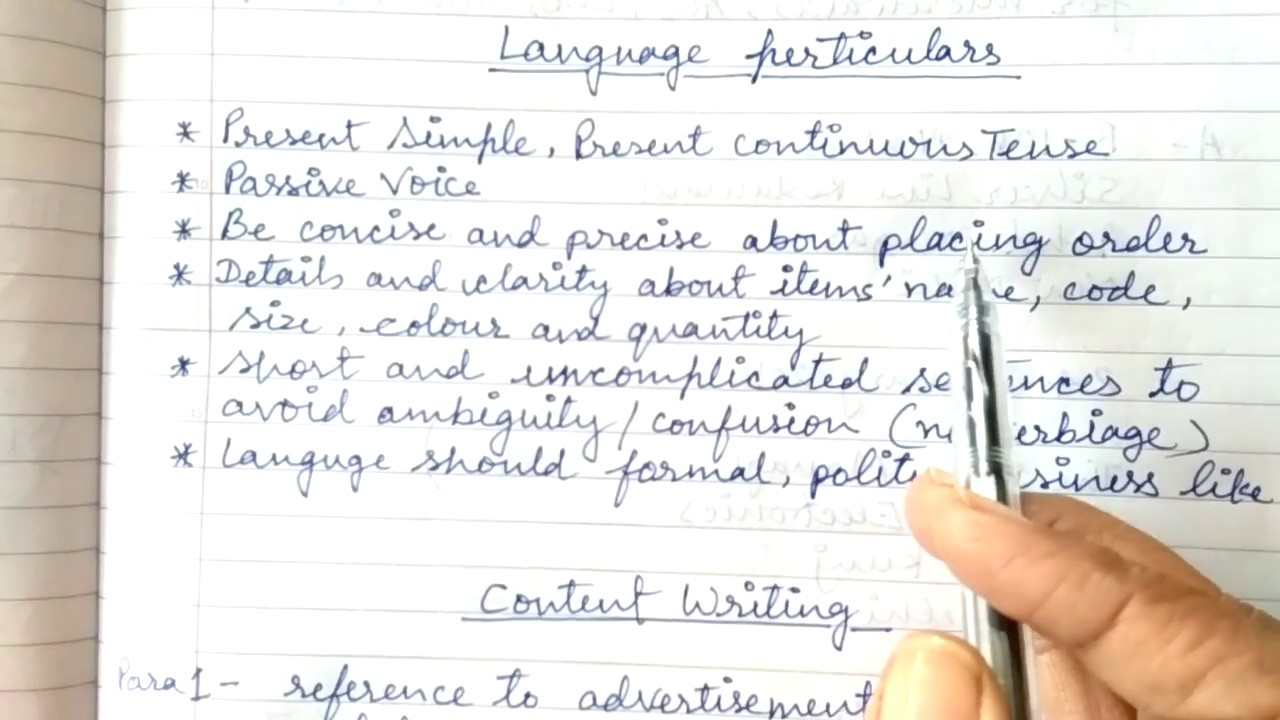 Language perticulars
* Present Simple, Present continuous Tense
* Passive Voice
* Be concise and precise about placing order
* Details and clarity about items' code,
size, colour and quantity
* Short and uncomplicated to
avoid ambiguity/confusion
* Languge should formal, like
Content Writing
Para 1 - reference to advertisement